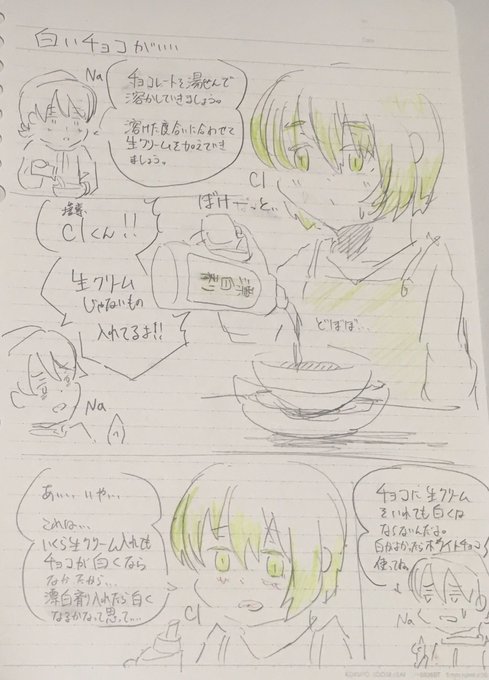 白いチョコがいい
Na
チョコレートを湯せんで
溶かしていきましょう。
溶けた度合いに合わせて
生クリームを加えていき
ましょう。
Cl
ぼけーっと..
塩素
Clくん!!
生クリーム
じゃないもの
入れてるよ!!
Na
漂白剤
どばば...
あぃ... いや...
これは...
いくら生クリーム入れても
チョコが白くなら
なかったから...
漂白剤入れたら白く
なるかなって思って....
Cl
チョコに生クリーム
をいれても白くは
ならないんだよ。
白がよかったらホワイトチョコ
使ってね
Na